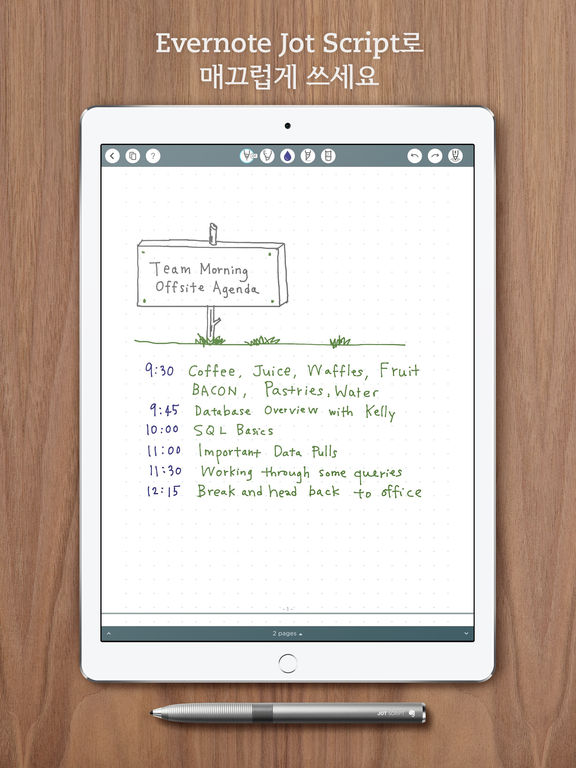 Evernote Jot Script로
매끄럽게 쓰세요
?
Team Morning
Offsite Agenda
9:30 Coffee, Juice, Waffles, Fruit
BACON, Pastries, Water
9:45 Database Overview with Kelly
10:00 SQL Basics
11:00 Important Data Pulls
11:30 Working through some queries
12:15 Break and head back to office
- 1 -
2 pages
JOT SCRIPT